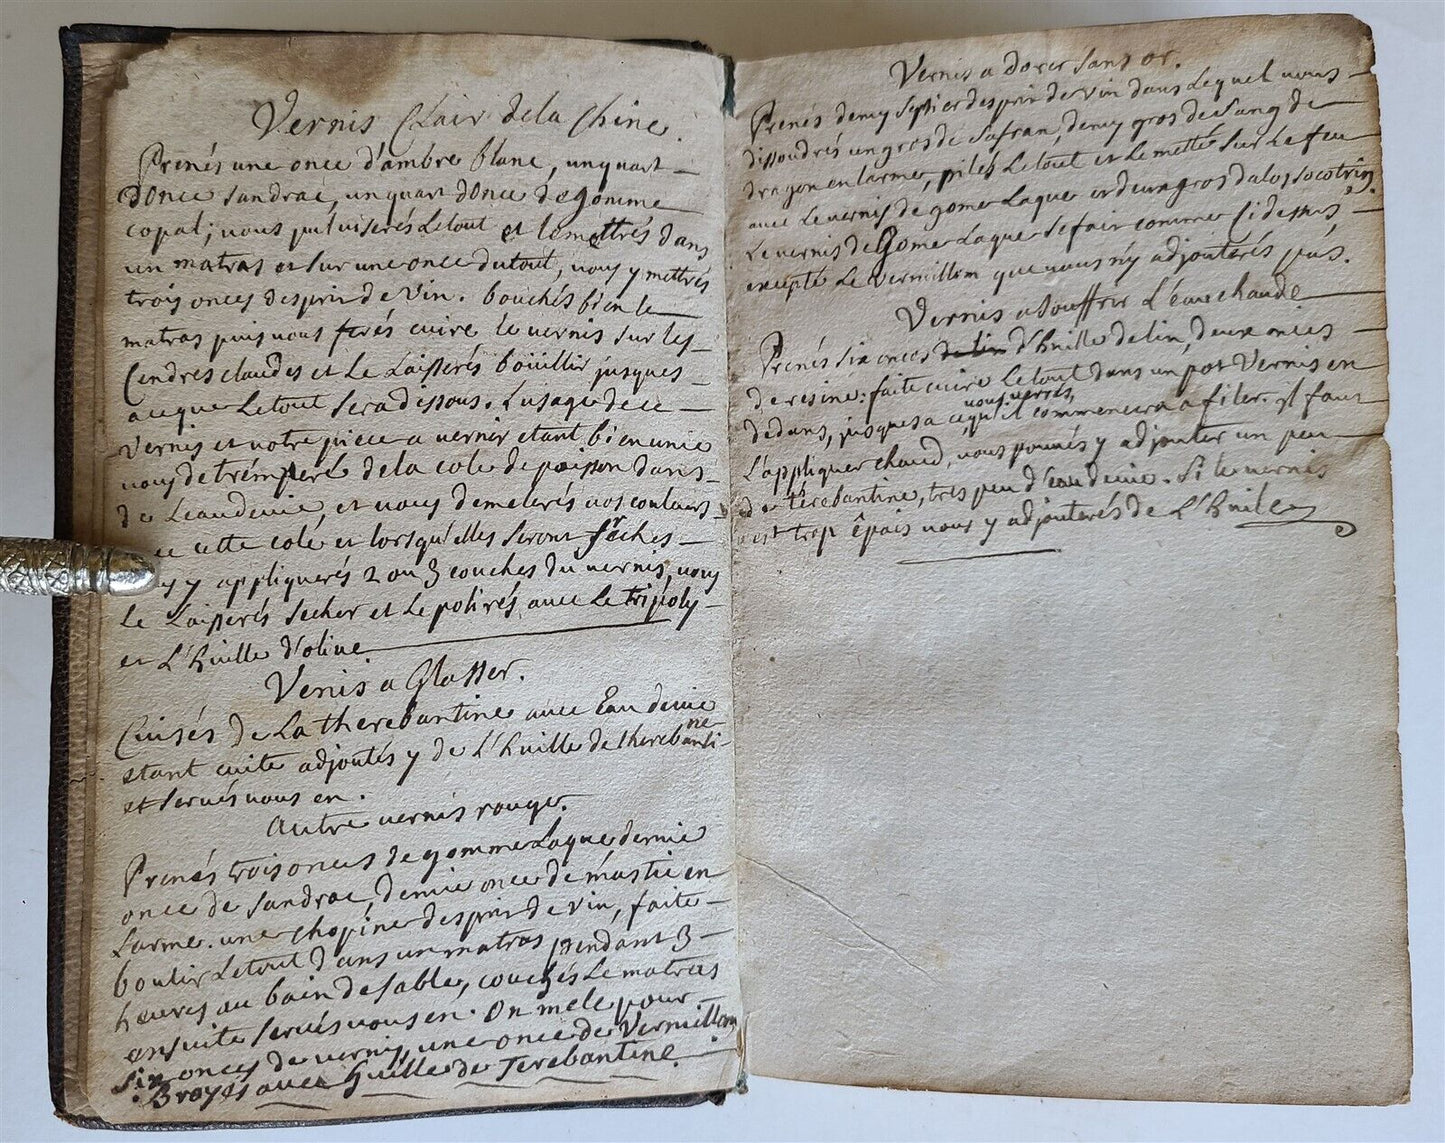 Vernis Clair de la Chine.
Prenés une once d'ambre blanc, un quart
donce Sandrac, un quart donce de gomme
copal; vous pulviserés Letout et le mettrés dans
un matras et sur une once du tout, vous y mettrés
trois onces desprit de Vin. bouchés bien le
matras puis vous ferés cuire le vernis sur les
Cendres claudes et Le Laisserés boüillir jusques
aceque Letout Sera dissous. Lusage de ce
Vernis et votre piece a vernir etant bien unie
vous detrémperé de la cole de poisson dans
de Leaudevie, et vous demelerés vos couleurs
cette cole et lorsqu'elles seront séches
y appliquerés 2 ou 3 couches du vernis, vous
le Laisserés secher et Le polirés avec Le tripoly
et L'huille d'olive
Venis a Glasser.
Cuisés de La therebantine avec Eau devie
etant cuite adjoutés y de L'huille de therebantine
et servés vous en.
autre vernis rouge.
Prenés trois onces de gomme Laque demie
once de Sandrac, demie once de mastic en
Larme. une chopine desprit de vin, faite
boulir Letout dans un matras pendant 3
heures au bain de sable, couchés Le matras
ensuite servés vous en. On mele pour
six onces de vernis une once de Vermillon
Broyés avec huille de Terebantine.
Vernis a dorer sans or.
Prenés demy septier desprit de vin dans Lequel vous
dissoudrés un gros de Safran, demy gros de Sang de
dragon en larme, pilés Le tout et Le metté sur Le feu
avec Le vernis de gome Laque et deux gros daloes socotrin.
Le vernis de Gome Laque se fait comme Ci dessus,
excepté Le vermillom que vous n'y adjouterés pas.
Vernis a Souffrir L'eau chaude
Prenés six onces d'huille de lin, deux onces
de resine: faite cuire Letout dans un pot Vernis en
dedans, jusques a ce qu'il vous verrés commencera a filer. il faut
L'appliquer chaud, vous pouvés y adjouter un peu
de térebantine, tres peu d'eau devie. Si le vernis
est trop êpais vous y adjouterés de L'huile